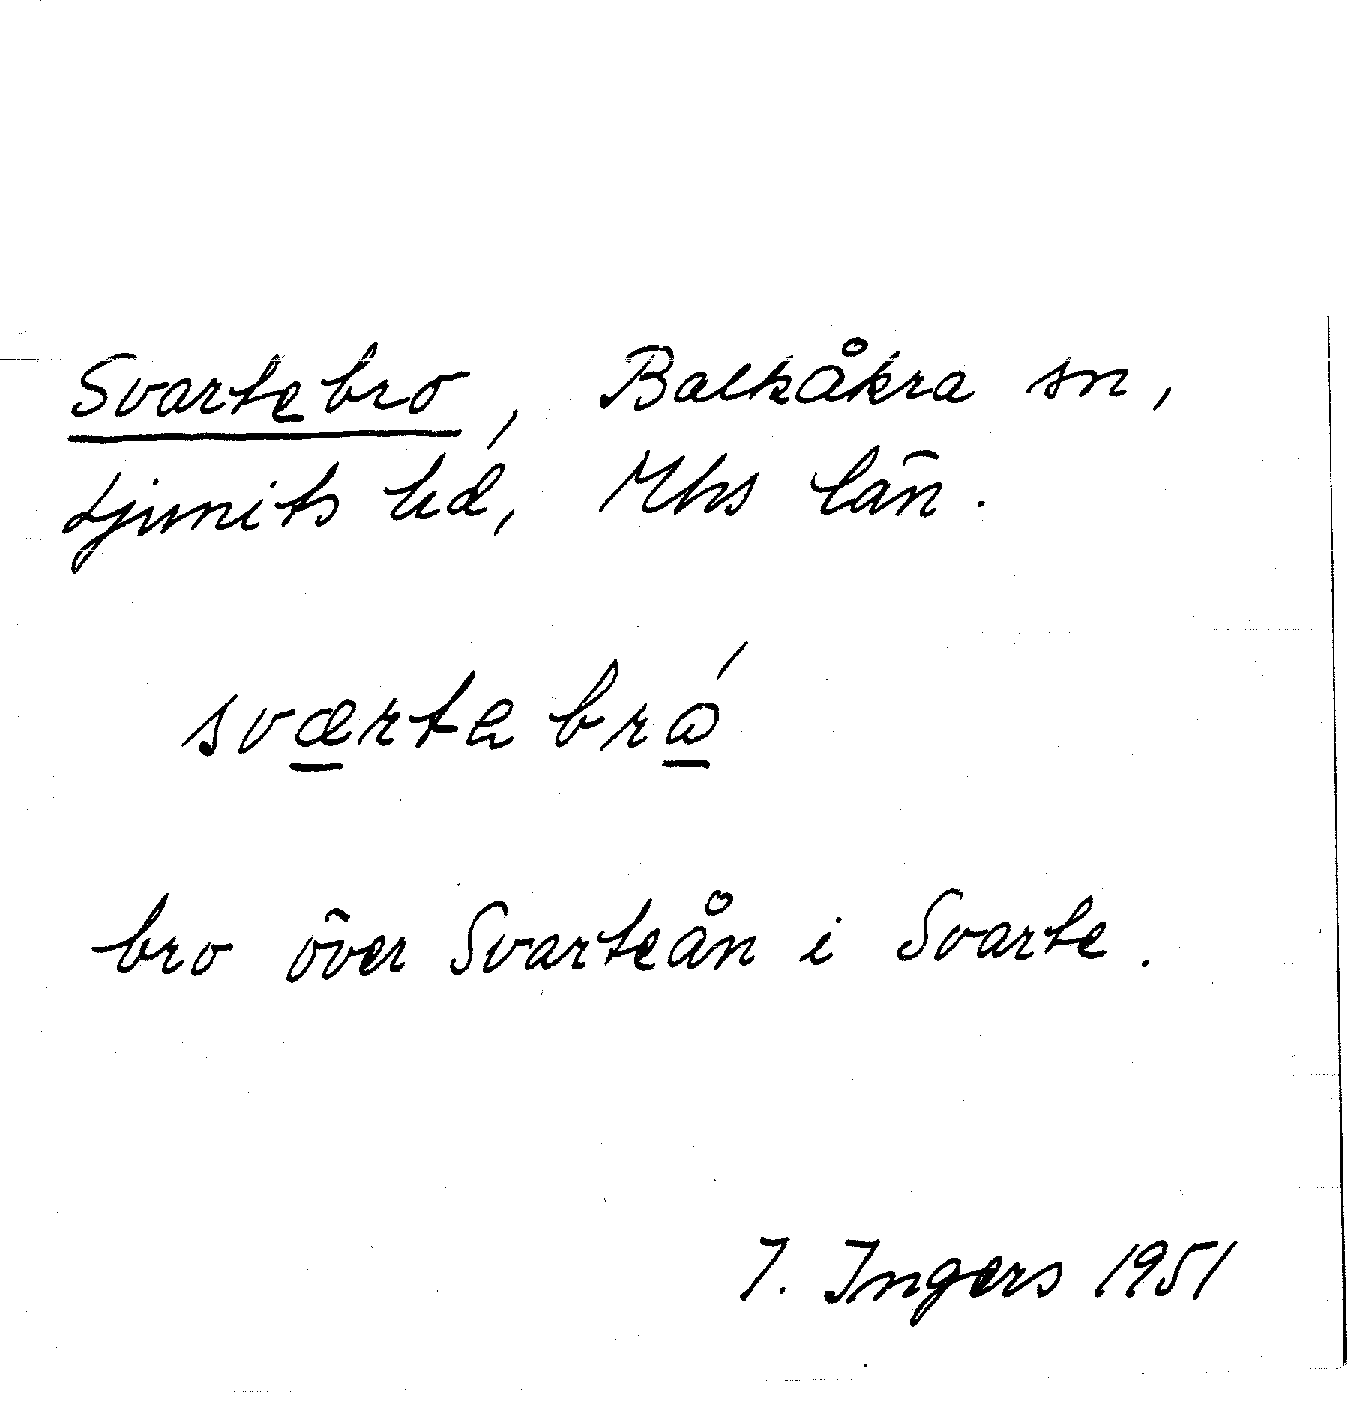 Svartebro, Balkåkra sn,
Ljunits hd, Mhs län.
sværtabrá
bro över Svarteån i Svarte.
I. Ingers 1951